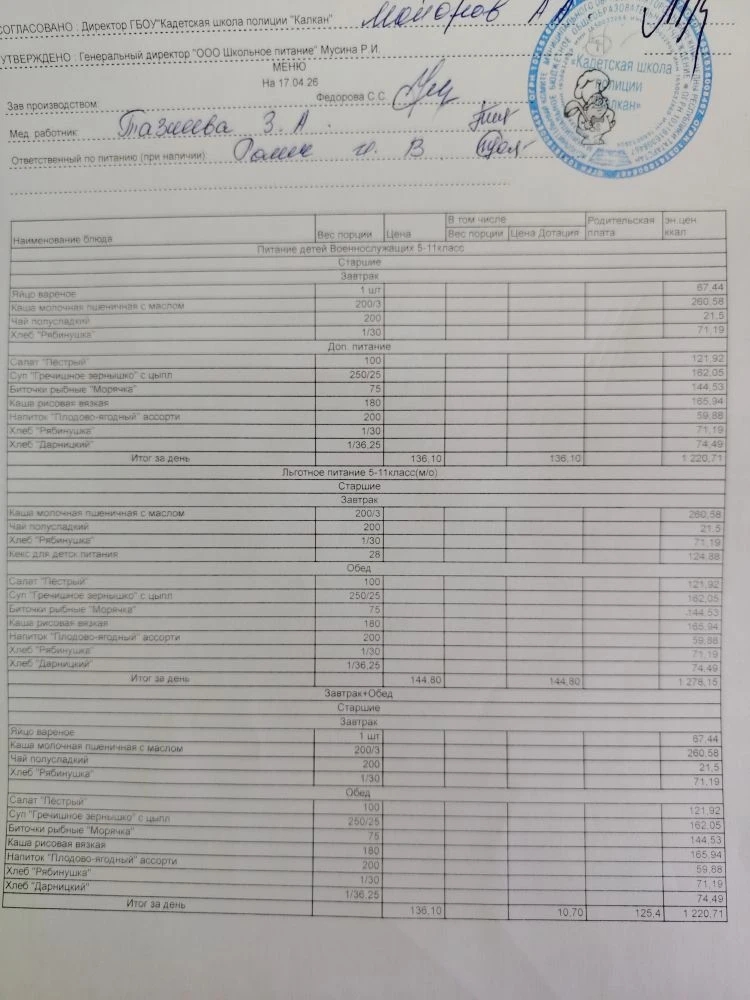 СОГЛАСОВАНО : Директор ГБОУ"Кадетская школа полиции "Калкан"
УТВЕРЖДЕНО : Генеральный директор "ООО Школьное питание" Мусина Р.И.
МЕНЮ
На 17.04.26
Зав производством: Федорова С.С.
Мед. работник: З. А.
Ответственный по питанию (при наличии):
«Кадетская школа
полиции
«Калкан»
Наименование блюда Вес порции Цена В том числе Вес порции Цена Дотация Родительская плата эн.цен. ккал
Питание детей Военнослужащих 5-11класс
Старшие
Завтрак
Яйцо вареное 1 шт 67,44
Каша молочная пшеничная с маслом 200/3 260,58
Чай полусладкий 200 21,5
Хлеб "Рябинушка" 1/30 71,19
Доп. питание
Салат "Пестрый" 100 121,92
Суп "Гречишное зернышко" с цыпл 250/25 162,05
Биточки рыбные "Морячка" 75 144,53
Каша рисовая вязкая 180 165,94
Напиток "Плодово-ягодный" ассорти 200 59,88
Хлеб "Рябинушка" 1/30 71,19
Хлеб "Дарницкий" 1/36,25 74,49
Итог за день 136,10 136,10 1 220,71
Льготное питание 5-11класс(м/о)
Старшие
Завтрак
Каша молочная пшеничная с маслом 200/3 260,58
Чай полусладкий 200 21,5
Хлеб "Рябинушка" 1/30 71,19
Кекс для детск.питания 28 124,88
Обед
Салат "Пестрый" 100 121,92
Суп "Гречишное зернышко" с цыпл 250/25 162,05
Биточки рыбные "Морячка" 75 144,53
Каша рисовая вязкая 180 165,94
Напиток "Плодово-ягодный" ассорти 200 59,88
Хлеб "Рябинушка" 1/30 71,19
Хлеб "Дарницкий" 1/36,25 74,49
Итог за день 144,80 144,80 1 278,15
Завтрак+Обед
Старшие
Завтрак
Яйцо вареное 1 шт 67,44
Каша молочная пшеничная с маслом 200/3 260,58
Чай полусладкий 200 21,5
Хлеб "Рябинушка" 1/30 71,19
Обед
Салат "Пестрый" 100 121,92
Суп "Гречишное зернышко" с цыпл 250/25 162,05
Биточки рыбные "Морячка" 75 144,53
Каша рисовая вязкая 180 165,94
Напиток "Плодово-ягодный" ассорти 200 59,88
Хлеб "Рябинушка" 1/30 71,19
Хлеб "Дарницкий" 1/36,25 74,49
Итог за день 136,10 10,70 125,4 1 220,71